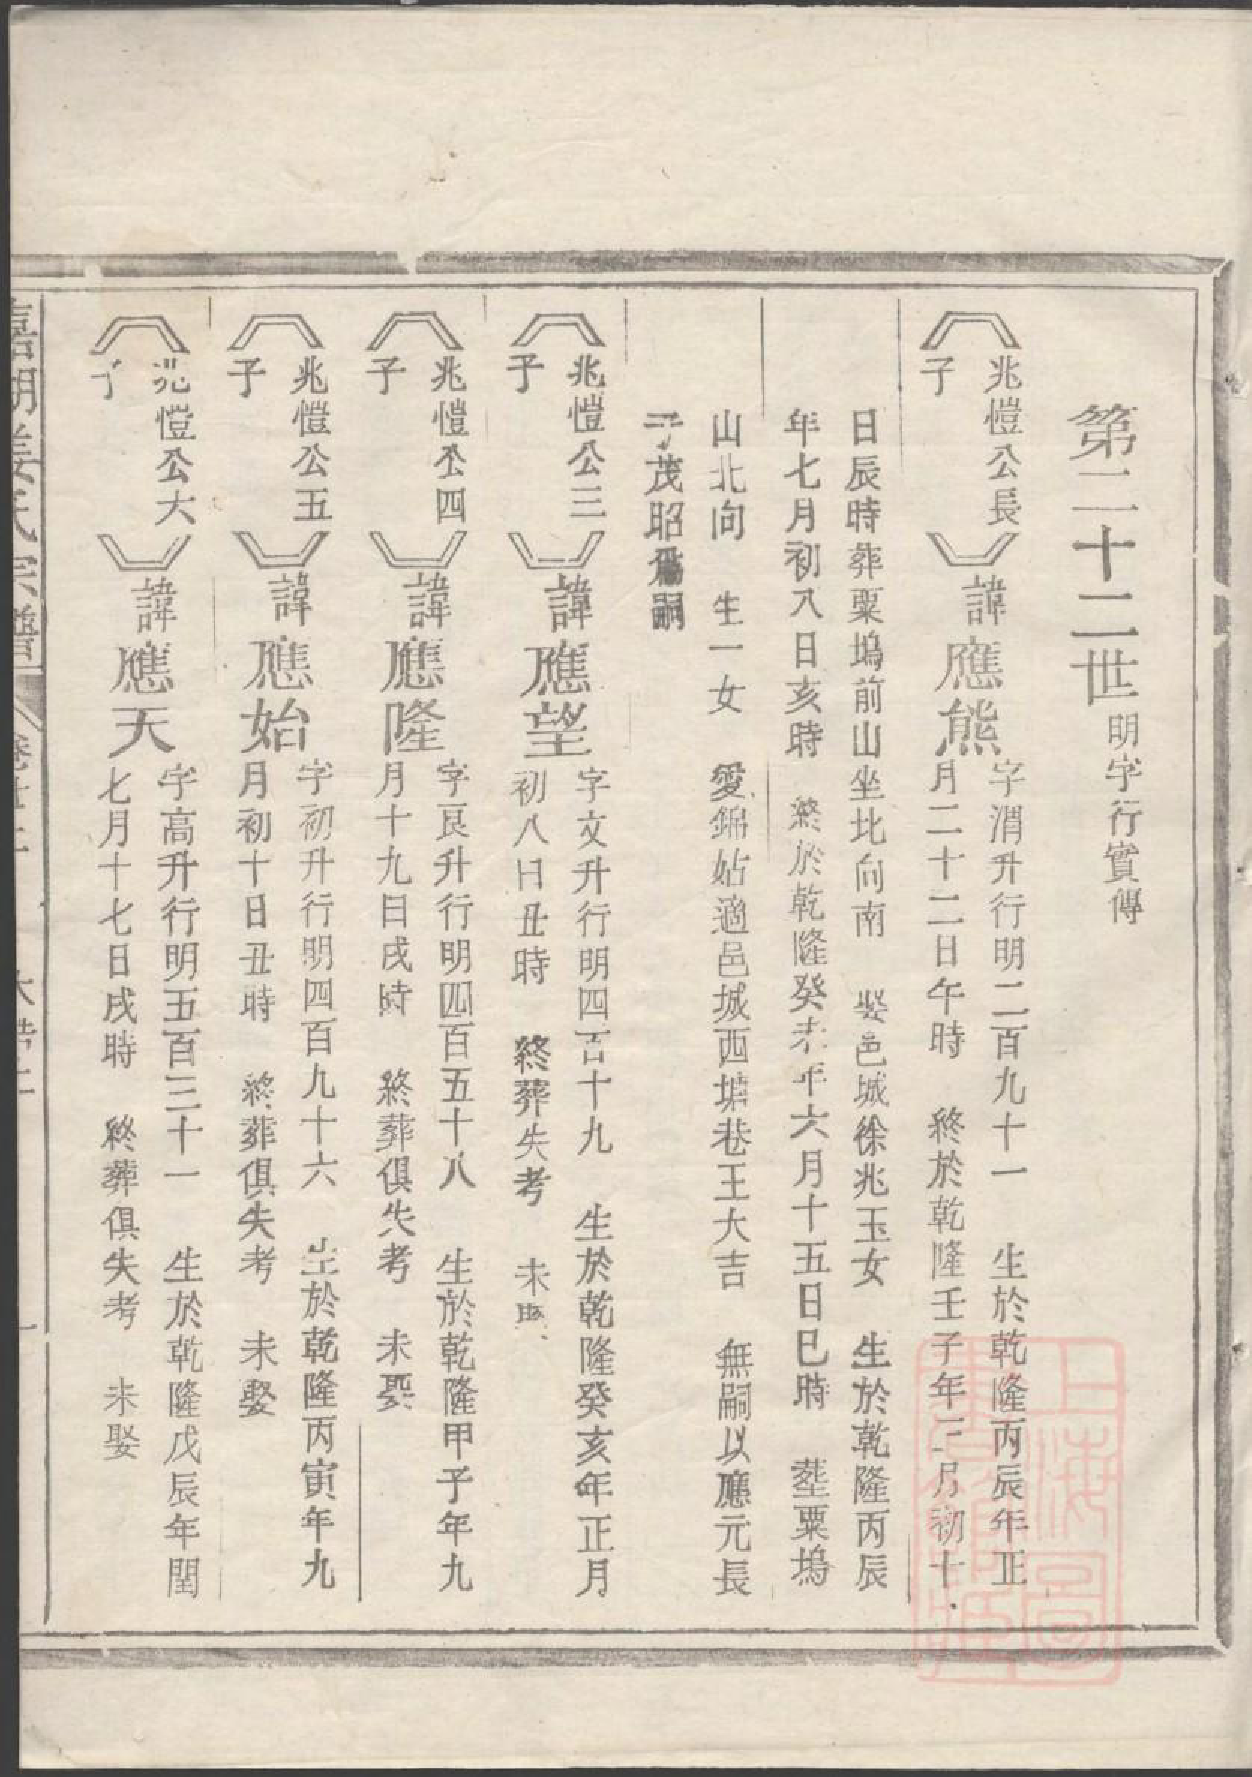 第二十二世明字行實傳
兆愷公長
子
諱應熊
字渭升行明二百九十一 生於乾隆丙辰年正
月二十二日午時 終於乾隆壬子年二月初十
日辰時葬粟塢前山坐北向南 娶邑城徐兆玉女 生於乾隆丙辰
年七月初八日亥時 終於乾隆癸未年六月十五日巳時 塟粟塢
山北向 生一女 愛錦姑適邑城西塘巷王大吉 無嗣以應元長
子茂昭為嗣
兆愷公三
子
諱應望
字文升行明四百十九 生於乾隆癸亥年正月
初八日丑時 終葬失考 未娶
兆愷公四
子
諱應隆
字艮升行明四百五十八 生於乾隆甲子年九
月十九日戌時 終葬俱失考 未娶
兆愷公五
子
諱應始
字初升行明四百九十六 生於乾隆丙寅年九
月初十日丑時 終葬俱失考 未娶
兆愷公六
子
諱應天
字高升行明五百三十一 生於乾隆戊辰年閏
七月十七日戌時 終葬俱失考 未娶
姜氏宗譜
上海圖書館藏